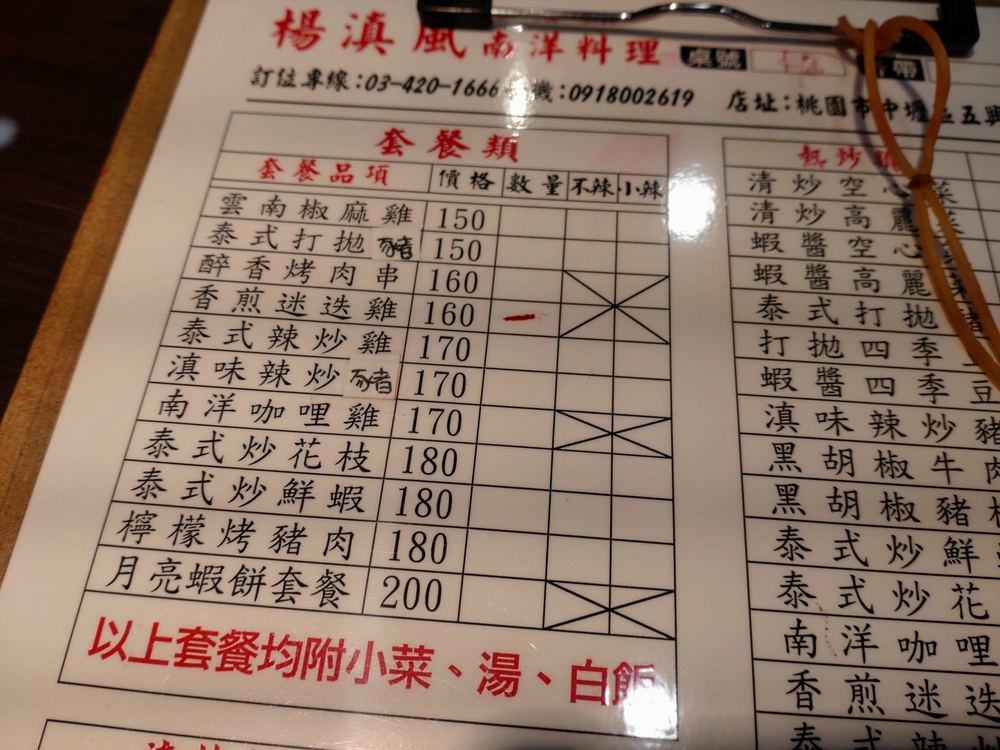 楊滇風南洋料理 桌號 帶
訂位專線:03-420-1666 機:0918002619 店址:桃園市中壢區五興
套餐類
套餐品項 價格 數量 不辣 小辣
雲南椒麻雞 150
泰式打拋豬 150
醉香烤肉串 160
香煎迷迭雞 160
泰式辣炒雞 170
滇味辣炒豬 170
南洋咖哩雞 170
泰式炒花枝 180
泰式炒鮮蝦 180
檸檬烤豬肉 180
月亮蝦餅套餐 200
以上套餐均附小菜、湯、白飯
熱炒類
清炒空心菜
清炒高麗菜
蝦醬空心
蝦醬高麗菜
泰式打拋豬
打拋四季
蝦醬四季豆
滇味辣炒豬
黑胡椒牛肉
黑胡椒豬
泰式炒鮮
泰式炒花
南洋咖哩
香煎迷迭
泰式辣炒